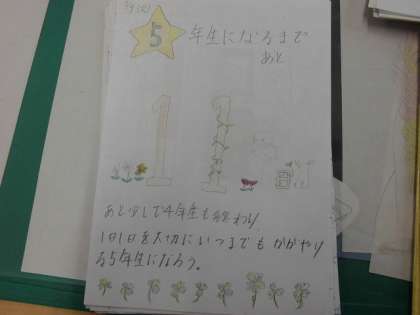 5年生になるまで
あと
11日
あと少しで4年生も終わり
1日1日を大切にいつまでもかがやけ
る5年生になろう。